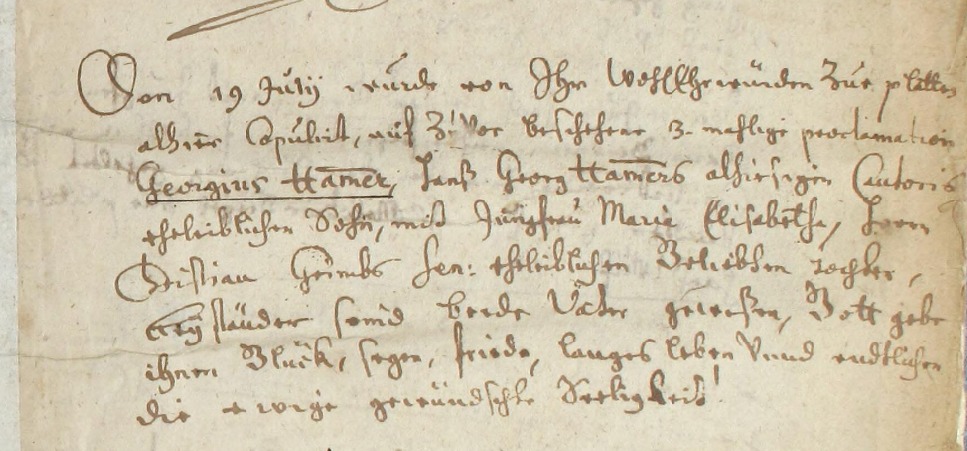 Den 19 Julÿ wurde von Ihr WohlEhrwürden Zue platten
alhier Copulirt, auf Zuvor beschehene 3. mahlige proclamation
Georgius Ham̄er, Hanß Georg Ham̄ers alhiesigen Cantoris
eheleiblicher Sohn, mit Jungfrau Maria Elisabetha, Herrn
Christian Grimbs sen: eheleiblichen Geliebten Tochter,
Beyständer seind beede Väter gewesen, Gott gebe
ihnen Glück, segen, friede, langes leben Vnnd endtlichen
die ewige gewündschte Seeligkeit!